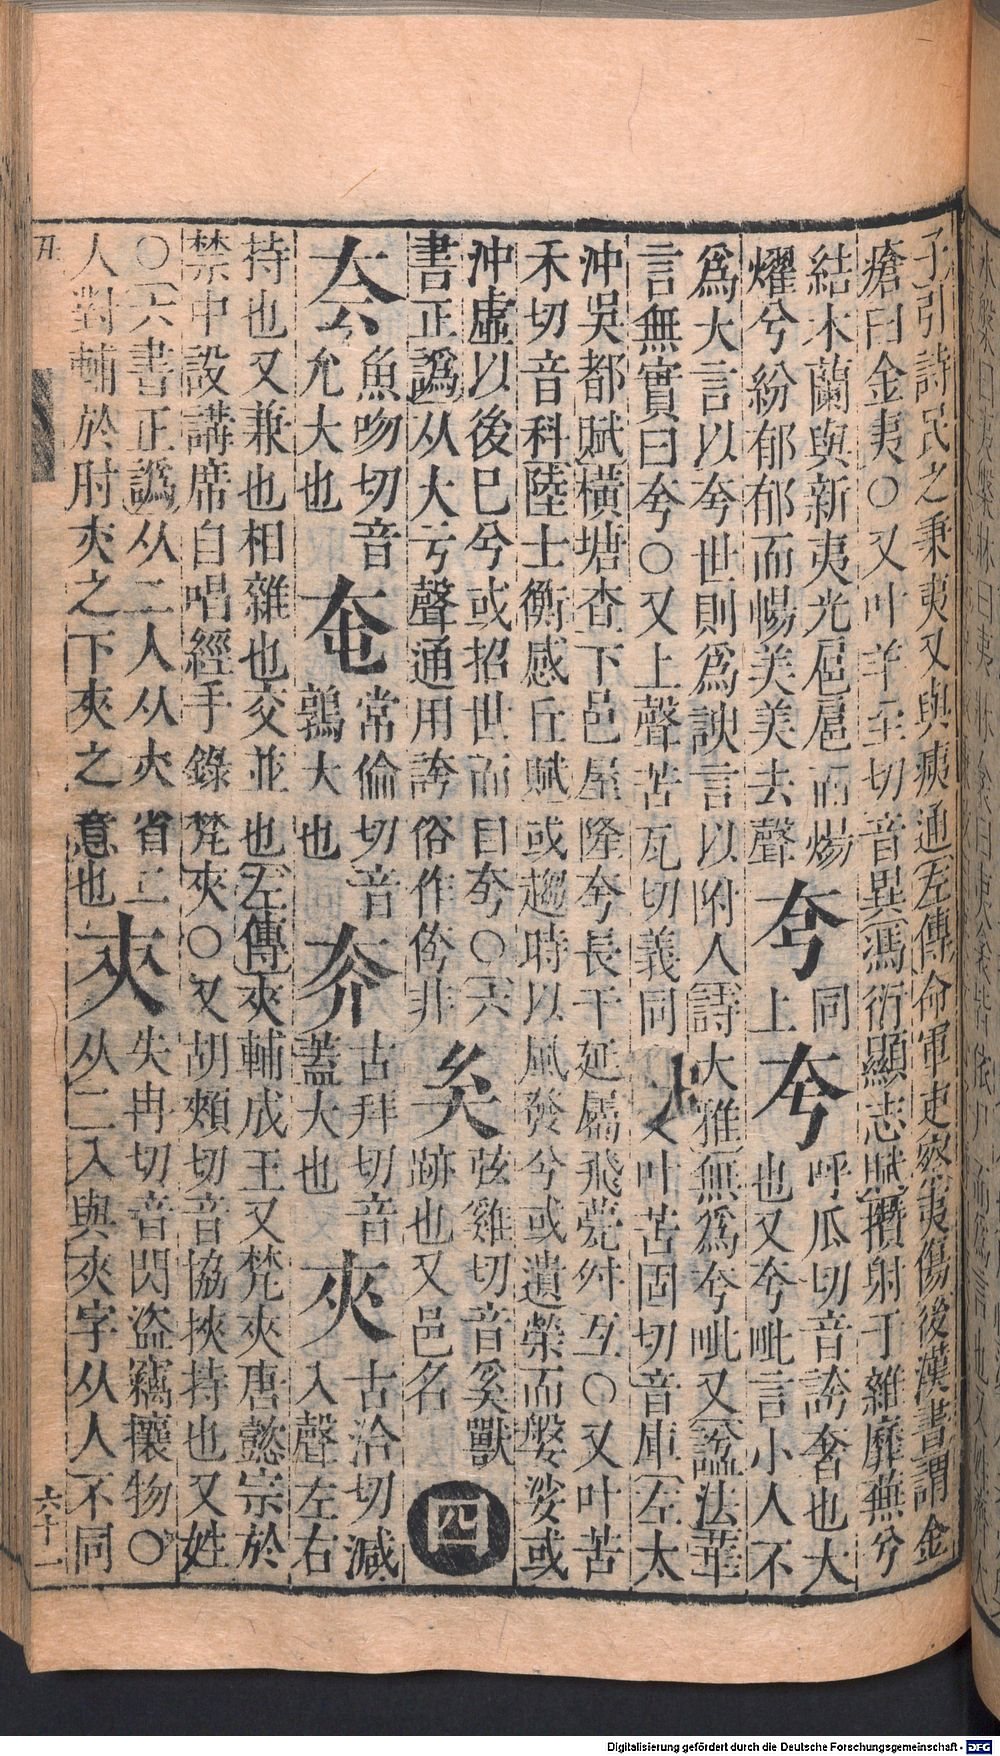 子引詩民之秉夷又與痍通左傳命軍吏察夷傷後漢書謂金
瘡曰金夷○又叶羊至切音異馮衍顯志賦攢射干雜蘼蕪兮
結木蘭與新夷光扈扈而煬
燿兮紛郁郁而暢美美去聲
夸
同
上
夸
呼瓜切音誇奢也大
也又夸毗言小人不
爲大言以夸世則爲諛言以附人詩大雅無爲夸毗又諡法華
言無實曰夸○又上聲苦瓦切義同
又叶苦固切音庫左太
沖吳都賦橫塘查下邑屋隆夸長干延屬飛甍舛互○又叶苦
禾切音科陸士衡感丘賦或趨時以風發兮或遺榮而媻娑或
沖虛以後巳兮或招世而自夸○六
書正譌从大亏聲通用誇俗作侉非
奊
弦雞切音奚獸
跡也又邑名
四
夽
魚吻切音
允大也
奄
常倫切音
鶉大也
夰
古拜切音
蓋大也
夾
古洽切減
入聲左右
持也又兼也相雜也交並也左傳夾輔成王又梵夾唐懿宗於
禁中設講席自唱經手錄梵夾○又胡頰切音協挾持也又姓
○六書正譌从二人从大省二
人對輔於肘夾之下夾之意也
夾
失冉切音閃盜竊褱物○
从二入與夾字从人不同
丑
六十一
Digitalisierung gefördert durch die Deutsche Forschungsgemeinschaft - DFG